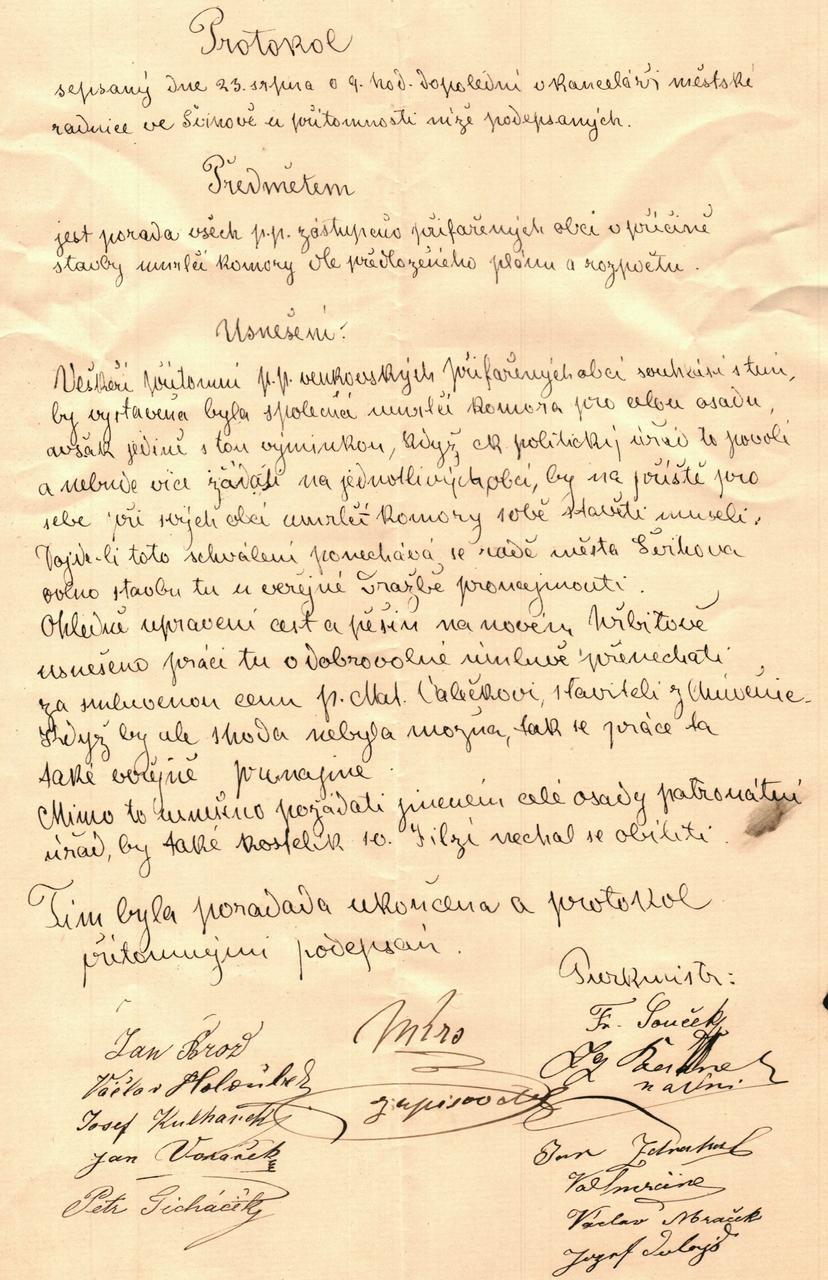 Protokol
sepsaný dne 23. srpna o 9. hod. dopolední v kanceláři městské
radnice ve Švihově u přítomnosti níže podepsaných.
Předmětem
jest porada všech p.p. zástupců přifařených obcí v příčině
stavby umrlčí komory dle předloženého plánu a rozpočtu.
Usnešení:
Veškeří přítomní p.p. venkovských přifařených obcí souhlasí s tím,
by vystavena byla společná umrlčí komora pro celou osadu,
avšak jedině s tou výminkou, když ck politický úřad to povolí
a nebude více žádati na jednotlivých obcí, by na příště pro
sebe při svých obcí umrlčí komory sobě stavěti museli.
Dojde-li toto schválení ponechává se radě města Švihova
volno stavbu tu u veřejné dražbě pronajmouti.
Ohledně upravení cest a pěšin na novém hřbitově
usnešeno práci tu o dobrovolné úmluvě přenechati
za smluvenou cenu p. Mat. Valečkovi, staviteli z
Když by ale shoda nebyla možna, tak se práce ta
také veřejně pronajme.
Mimo to usnešeno požádati jménem celé osady patronátní
úřad, by také kostelík sv. Jiljí nechal se obíliti.
Tím byla poradada ukončena a protokol
přítomnými podepsán.
Purkmistr:
Fr. Souček
Jan Brož
Václav Holoubek
Josef Kulhánek
Jan Voráček
Petr
zapisovatel
Jan
Václav Mraček
Jozef